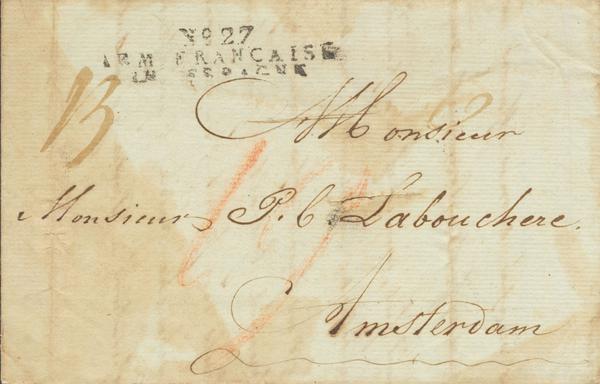 No 27
ARM FRANCAISE
EN ESPAGNE
13
Monsieur
Monsieur P. C. Labouchere.
Amsterdam